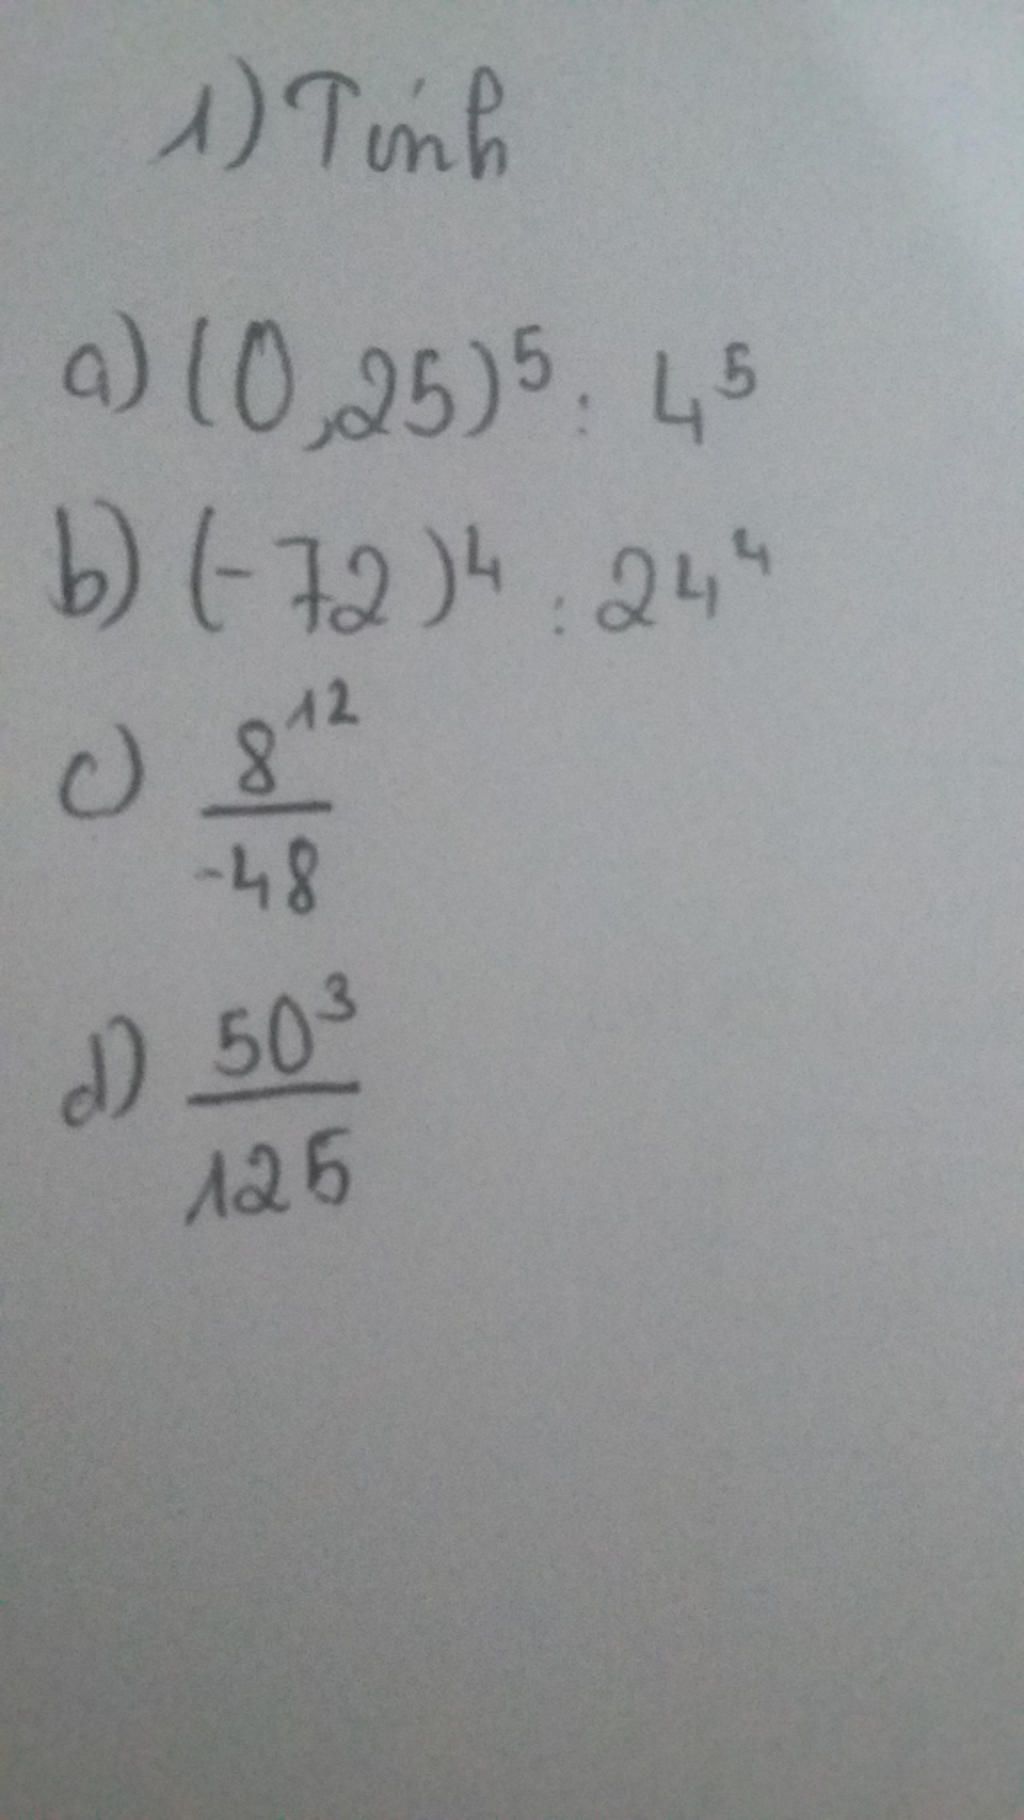 1) Tính
a) (0,25)⁵ : 4⁵
b) (-72)⁴ : 24⁴
c) 8¹²
-48
d) 50³
125